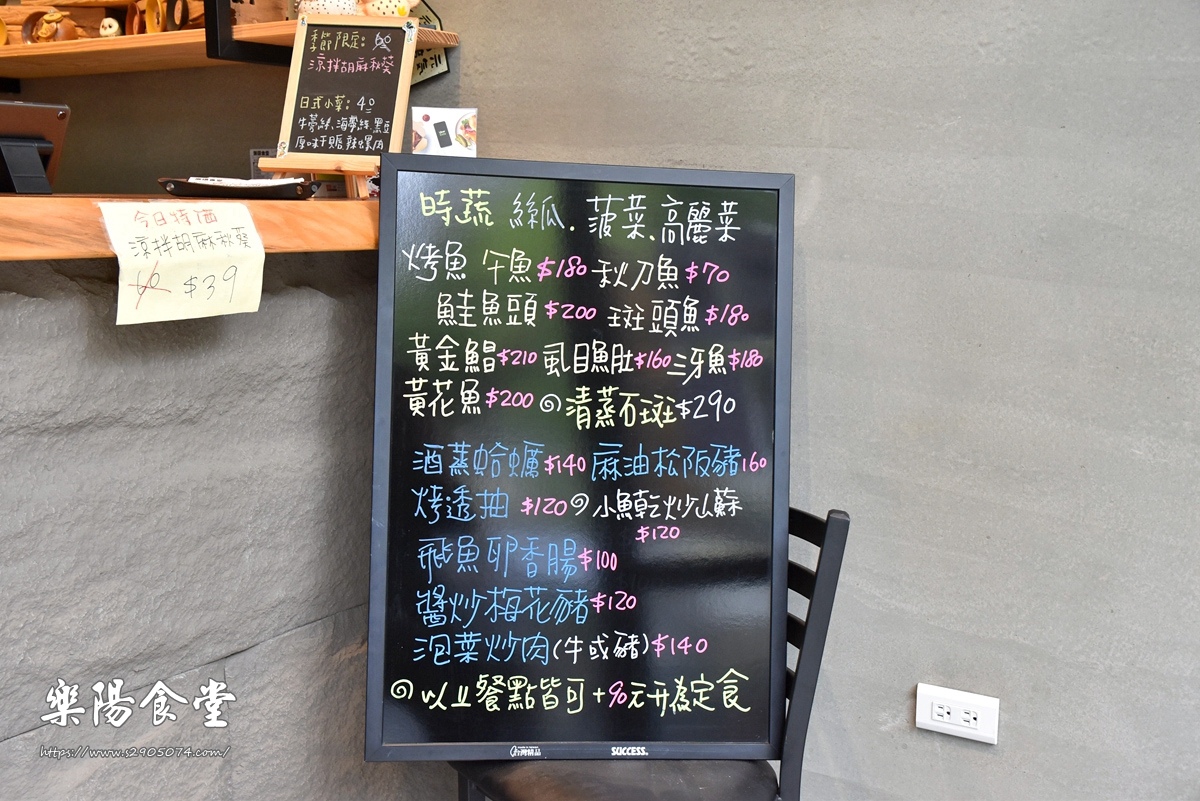 季節限定:
涼拌胡麻秋葵
日式小菜: 40
牛蒡絲、海帶絲、黑豆
原味干貝唇、辣螺肉
今日特価
涼拌胡麻秋葵
60 $39
時蔬 絲瓜.菠菜、高麗菜
烤魚 午魚$180 秋刀魚$70
鮭魚頭$200 斑頭魚$180
黃金鯧$210 虱目魚肚$160 三牙魚$180
黃花魚$200 清蒸石斑$290
酒蒸蛤蠣$140 麻油松阪豬160
烤透抽 $120 小魚乾炒山蘇
$120
飛魚卵香腸$100
醬炒梅花豬$120
泡菜炒肉(牛或豬)$140
以上餐點皆可+90元升為定食
台灣精品 SUCCESS.
樂陽食堂
https://www.s2905074.com/